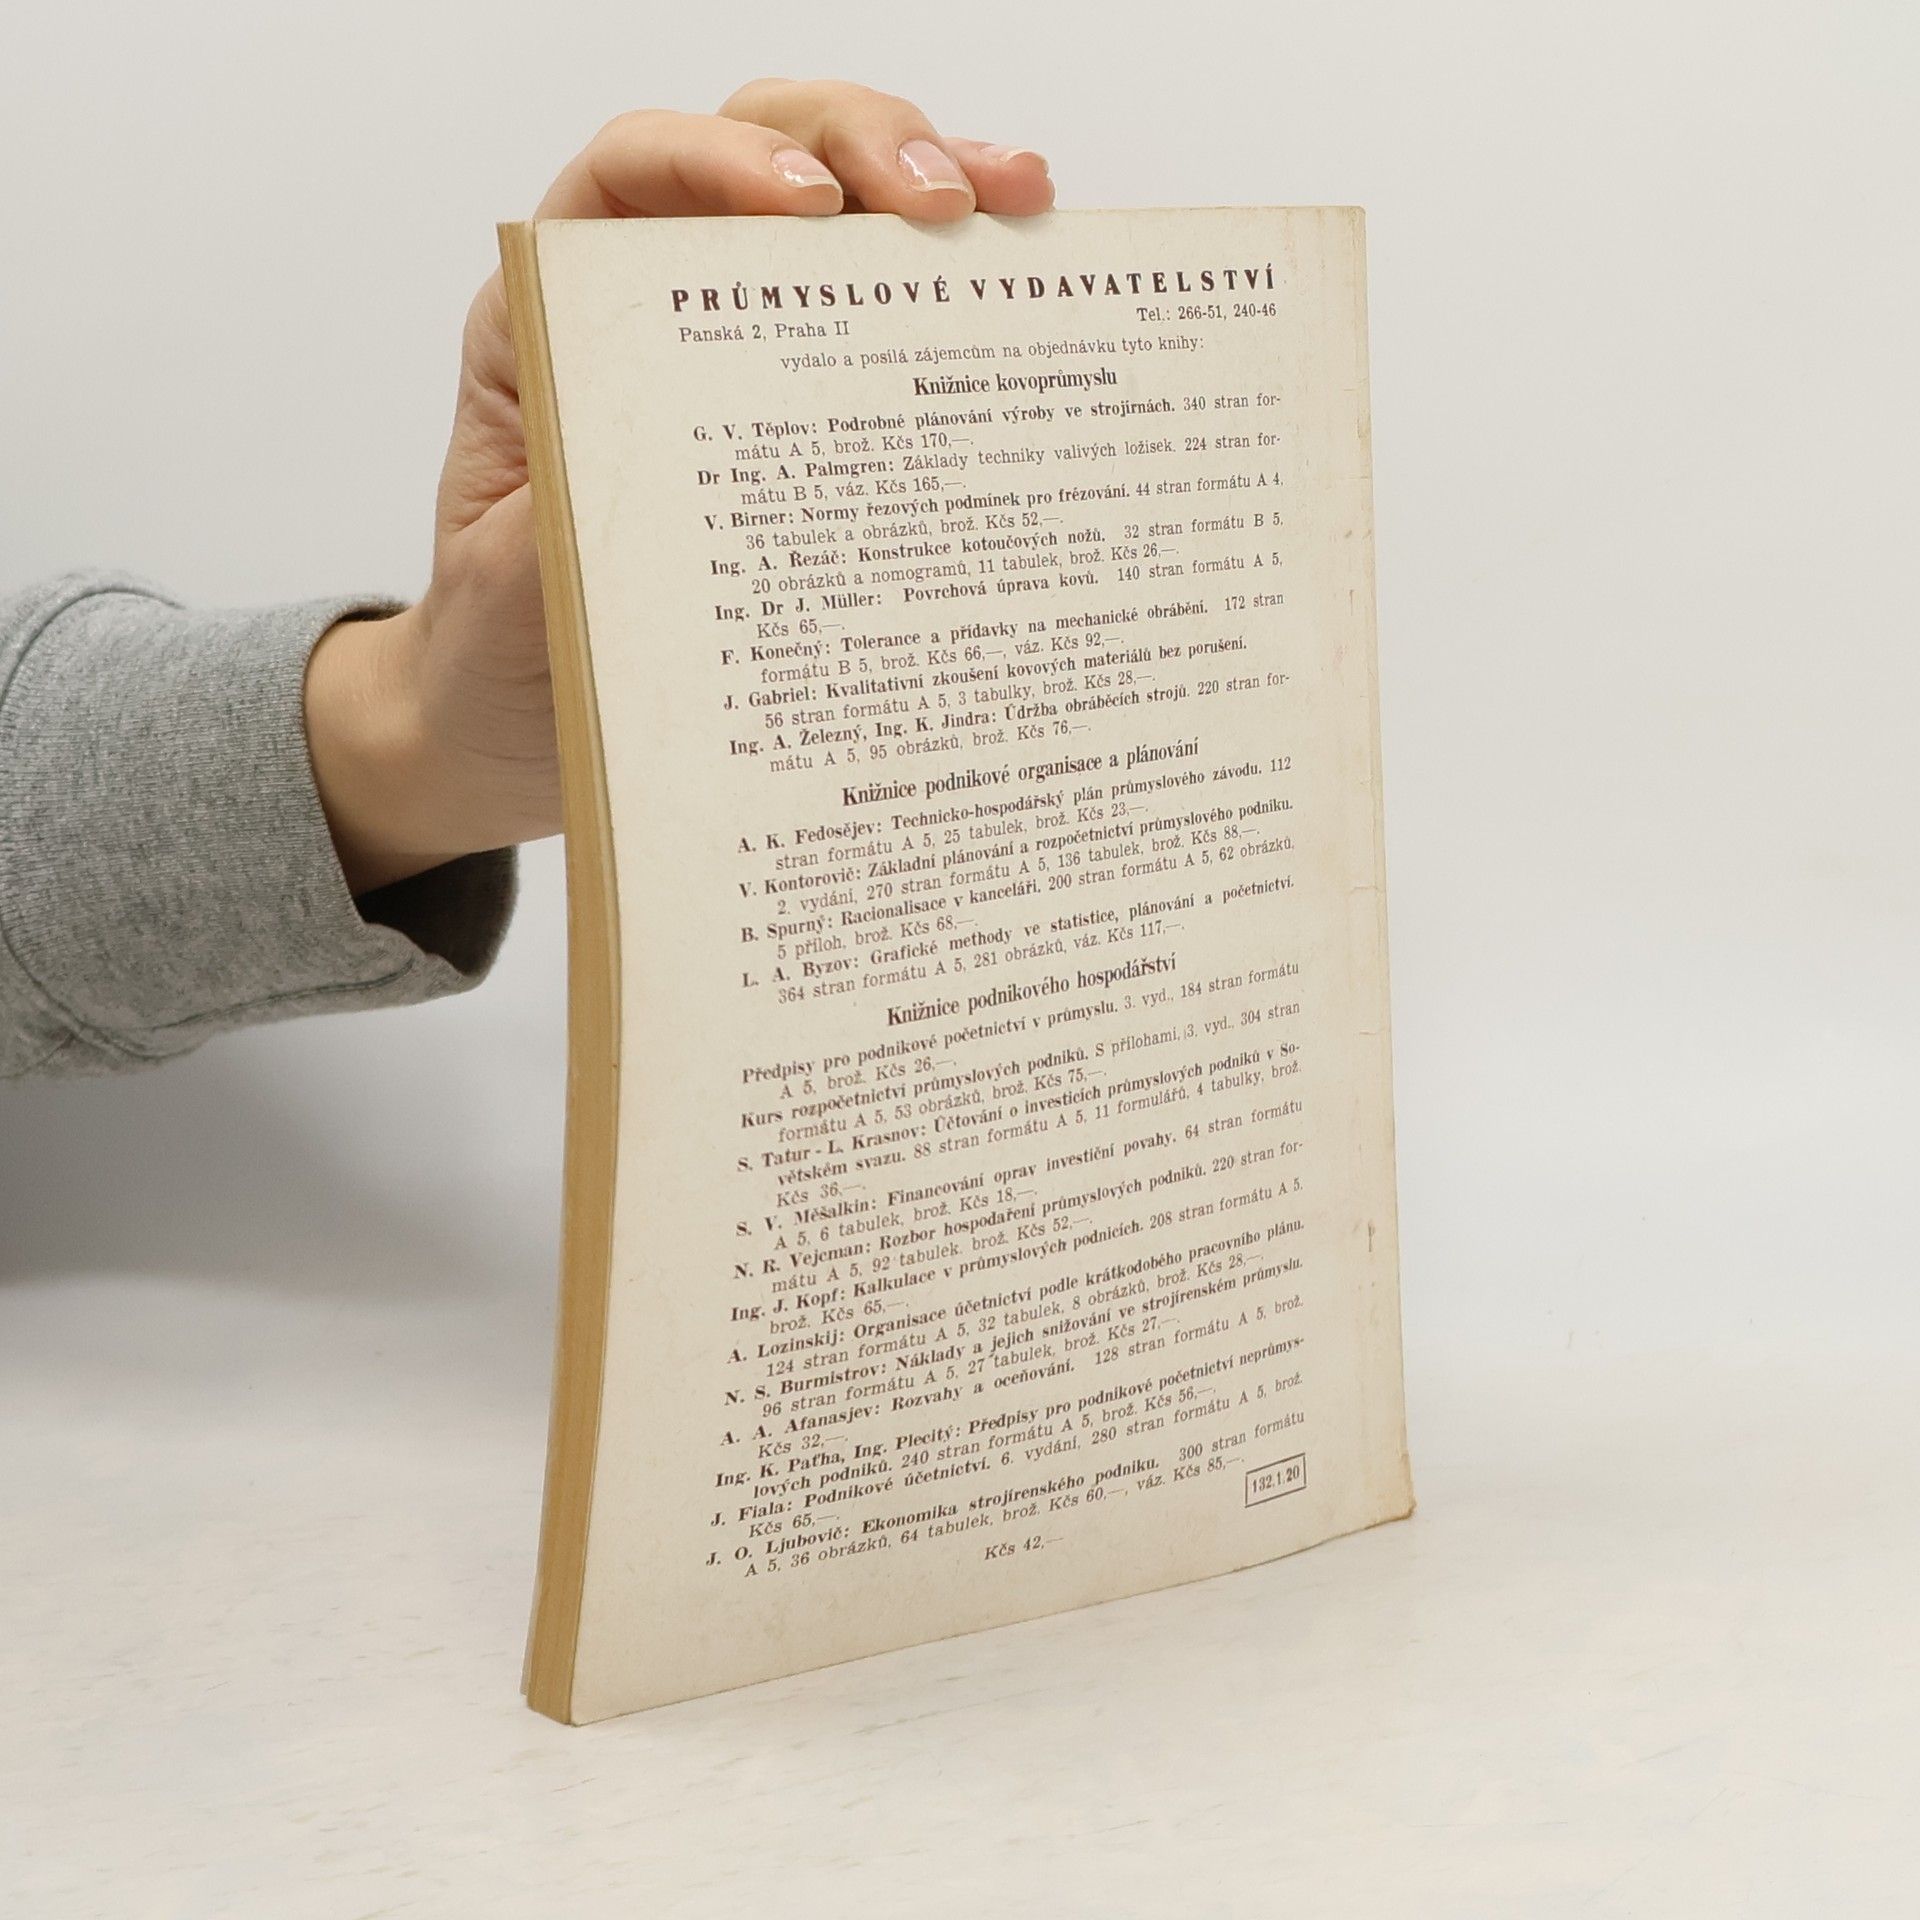 PRŮMYSLOVÉ VYDAVATELSTVÍ
Panská 2, Praha II
Tel.: 266-51, 240-46
vydalo a posílá zájemcům na objednávku tyto knihy:
Knižnice kovoprůmyslu
G. V. Těplov: Podrobné plánování výroby ve strojírnách. 340 stran for-
mátu A 5, brož. Kčs 170,—.
Dr Ing. A. Palmgren: Základy techniky valivých ložisek. 224 stran for-
mátu B 5, váz. Kčs 165,—.
V. Birner: Normy řezových podmínek pro frézování. 44 stran formátu A 4,
36 tabulek a obrázků, brož. Kčs 52,—.
Ing. A. Řezáč: Konstrukce kotoučových nožů. 32 stran formátu B 5,
20 obrázků a nomogramů, 11 tabulek, brož. Kčs 26,—.
Ing. Dr J. Müller: Povrchová úprava kovů. 140 stran formátu A 5,
Kčs 65,—.
F. Konečný: Tolerance a přídavky na mechanické obrábění. 172 stran
formátu B 5, brož. Kčs 66,—, váz. Kčs 92,—.
J. Gabriel: Kvalitativní zkoušení kovových materiálů bez porušení.
56 stran formátu A 5, 3 tabulky, brož. Kčs 28,—.
Ing. A. Železný, Ing. K. Jindra: Údržba obráběcích strojů. 220 stran for-
mátu A 5, 95 obrázků, brož. Kčs 76,—.
Knižnice podnikové organisace a plánování
A. K. Fedosějev: Technicko-hospodářský plán průmyslového závodu. 112
stran formátu A 5, 25 tabulek, brož. Kčs 23,—.
V. Kontorovič: Základní plánování a rozpočetnictví průmyslového podniku.
2. vydání, 270 stran formátu A 5, 136 tabulek, brož. Kčs 88,—.
B. Spurný: Racionalisace v kanceláři. 200 stran formátu A 5, 62 obrázků,
5 příloh, brož. Kčs 68,—.
L. A. Byzov: Grafické methody ve statistice, plánování a početnictví.
364 stran formátu A 5, 281 obrázků, váz. Kčs 117,—.
Knižnice podnikového hospodářství
Předpisy pro podnikové početnictví v průmyslu. 3. vyd., 184 stran formátu
A 5, brož. Kčs 26,—.
Kurs rozpočetnictví průmyslových podniků. S přílohami, 3. vyd., 304 stran
formátu A 5, 53 obrázků, brož. Kčs 75,—.
S. Tatur - L. Krasnov: Účtování o investicích průmyslových podniků v So-
větském svazu. 88 stran formátu A 5, 11 formulářů, 4 tabulky, brož.
Kčs 36,—.
S. V. Měšalkin: Financování oprav investiční povahy. 64 stran formátu
A 5, 6 tabulek, brož. Kčs 18,—.
N. R. Vejcman: Rozbor hospodaření průmyslových podniků. 220 stran for-
mátu A 5, 92 tabulek, brož. Kčs 52,—.
Ing. J. Kopf: Kalkulace v průmyslových podnicích. 208 stran formátu A 5,
brož. Kčs 65,—.
A. Lozinskij: Organisace účetnictví podle krátkodobého pracovního plánu.
124 stran formátu A 5, 32 tabulek, 8 obrázků, brož. Kčs 28,—.
N. S. Burmistrov: Náklady a jejich snižování ve strojírenském průmyslu.
96 stran formátu A 5, 27 tabulek, brož. Kčs 27,—.
A. A. Afanasjev: Rozvahy a oceňování. 128 stran formátu A 5, brož.
Kčs 32,—.
Ing. K. Paťha, Ing. Plecitý: Předpisy pro podnikové početnictví neprůmys-
lových podniků. 240 stran formátu A 5, brož. Kčs 56,—.
J. Fiala: Podnikové účetnictví. 6. vydání, 280 stran formátu A 5, brož.
Kčs 65,—.
J. O. Ljubovič: Ekonomika strojírenského podniku. 300 stran formátu
A 5, 36 obrázků, 64 tabulek, brož. Kčs 60,—, váz. Kčs 85,—.
132.1.20
Kčs 42,—